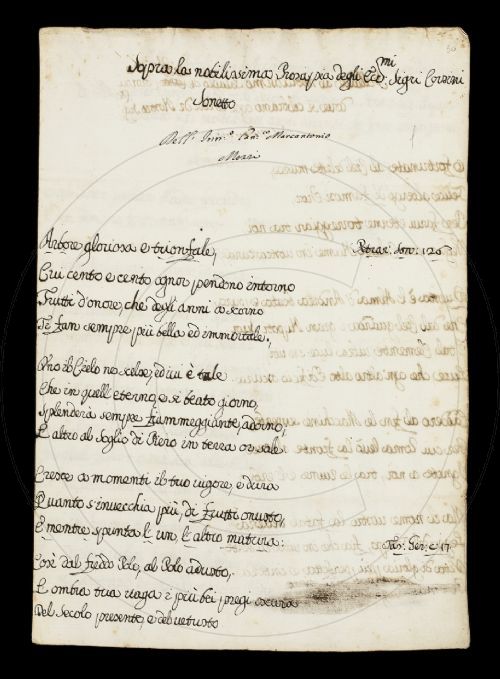 30
Sopra la nobilissima Prosapia degli Ecc.mi Sigri Correri
Sonetto
Dell' Can.co Marcantonio
Mozzi
Arbore gloriosa e trionfale, Petrar. Son. 126
Cui cento e cento ognor pendono intorno
Frutti d'onore, che degli anni a scorno
Ti fan sempre più bella ed immortale.
Uno il Cielo ne scelse, ed ivi è tale
Che in quell' eterno, e sì beato giorno,
Splenderà sempre fiammeggiante, adorno,
E altro al Soglio di Piero in terra or sale
Cresce a momenti il tuo vigore, e dura
Quanto s'invecchia più, di frutti onusto,
E mentre spunta l' un, l' altro matura: Tas. Ger. c. 17.
Così dal freddo Polo, al Polo adusto,
L' ombra tua vaga i più bei pregi oscura
Del Secolo presente, e del vetusto